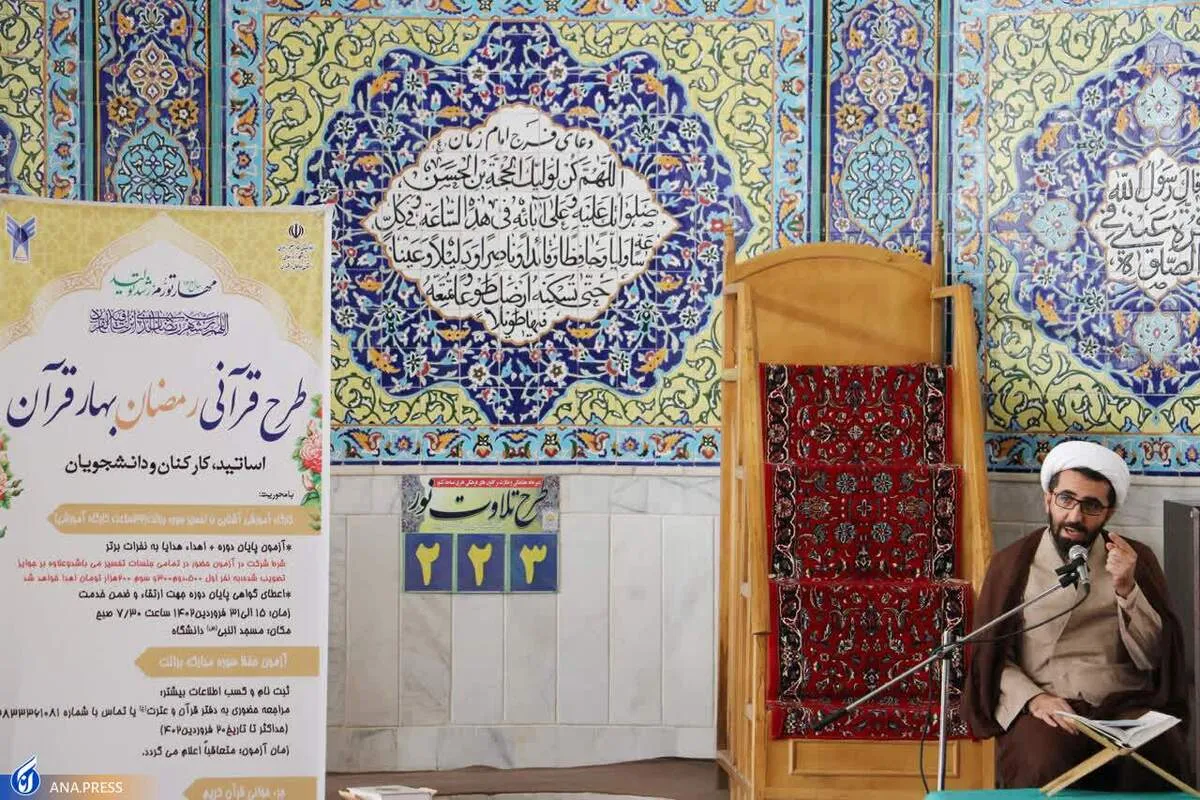 مهار تورم، رشد تولید
طرح قرآنی رمضان بهار قرآن
اساتید، کارکنان و دانشجویان
با محوریت:
*آزمون پایان دوره + اهداء هدایا به نفرات برتر
شرط شرکت در آزمون حضور در تمامی جلسات تفسیر می باشد وعلاوه بر جوایز
*اعطای گواهی پایان دوره جهت ارتقاء و ضمن خدمت
زمان: ۱۵ الی ۳۱ فروردین ۱۴۰۲ ساعت ۷/۳۰ صبح
مکان: مسجد النبی(ص) دانشگاه
آزمون حفظ سوره مبارکه برائت
ثبت نام و کسب اطلاعات بیشتر:
مراجعه حضوری به دفتر قرآن و عترت یا تماس با شماره
(حداکثر تا تاریخ ۲۰ فروردین ۱۴۰۲)
زمان آزمون: متعاقباً اعلام می گردد.
جزء خوانی قرآن کریم
دعای فرج امام زمان (ع)
اللهم کن لولیک الحجة بن الحسن
صلواتک علیه و علی آبائه فی هذه الساعة و فی کل
ساعة ولیا و حافظا و قائدا و ناصرا و دلیلا و عینا
حتی تسکنه ارضک طوعا و تمتعه
فیها طویلا
طرح تلاوت نور
۲ ۲ ۳
قال رسول الله
قرة عینی فی
الصلوة
ANA.PRESS